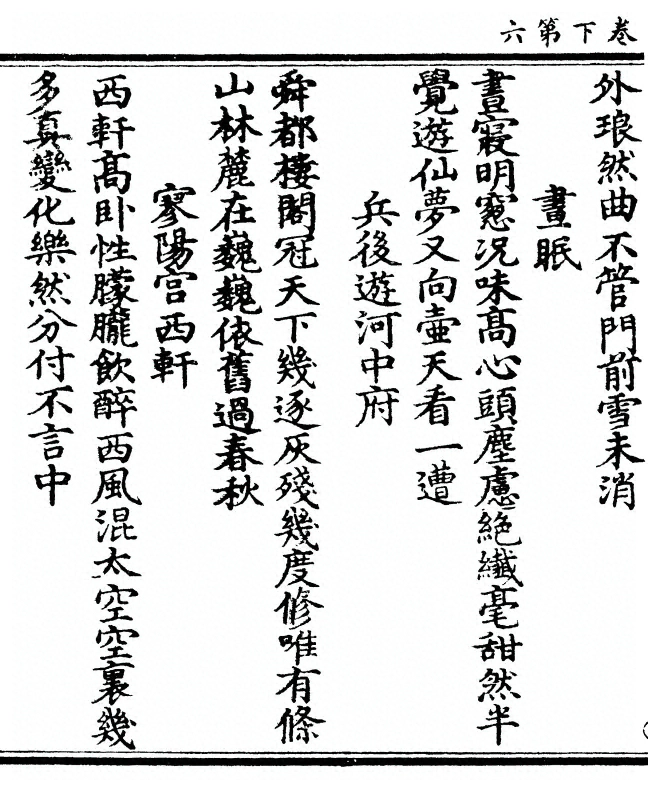 卷下第六
外琅然曲不管門前雪未消
晝眠
晝寢明窻況味高心頭塵慮絕纖毫甜然半
覺遊仙夢又向壷天看一遭
兵後遊河中府
舜都樓閣冠天下幾逐灰殘幾度修唯有條
山林麓在巍巍依舊過春秋
寥陽宫西軒
西軒高卧性朦朧飲醉西風混太空空裏幾
多真變化樂然分付不言中